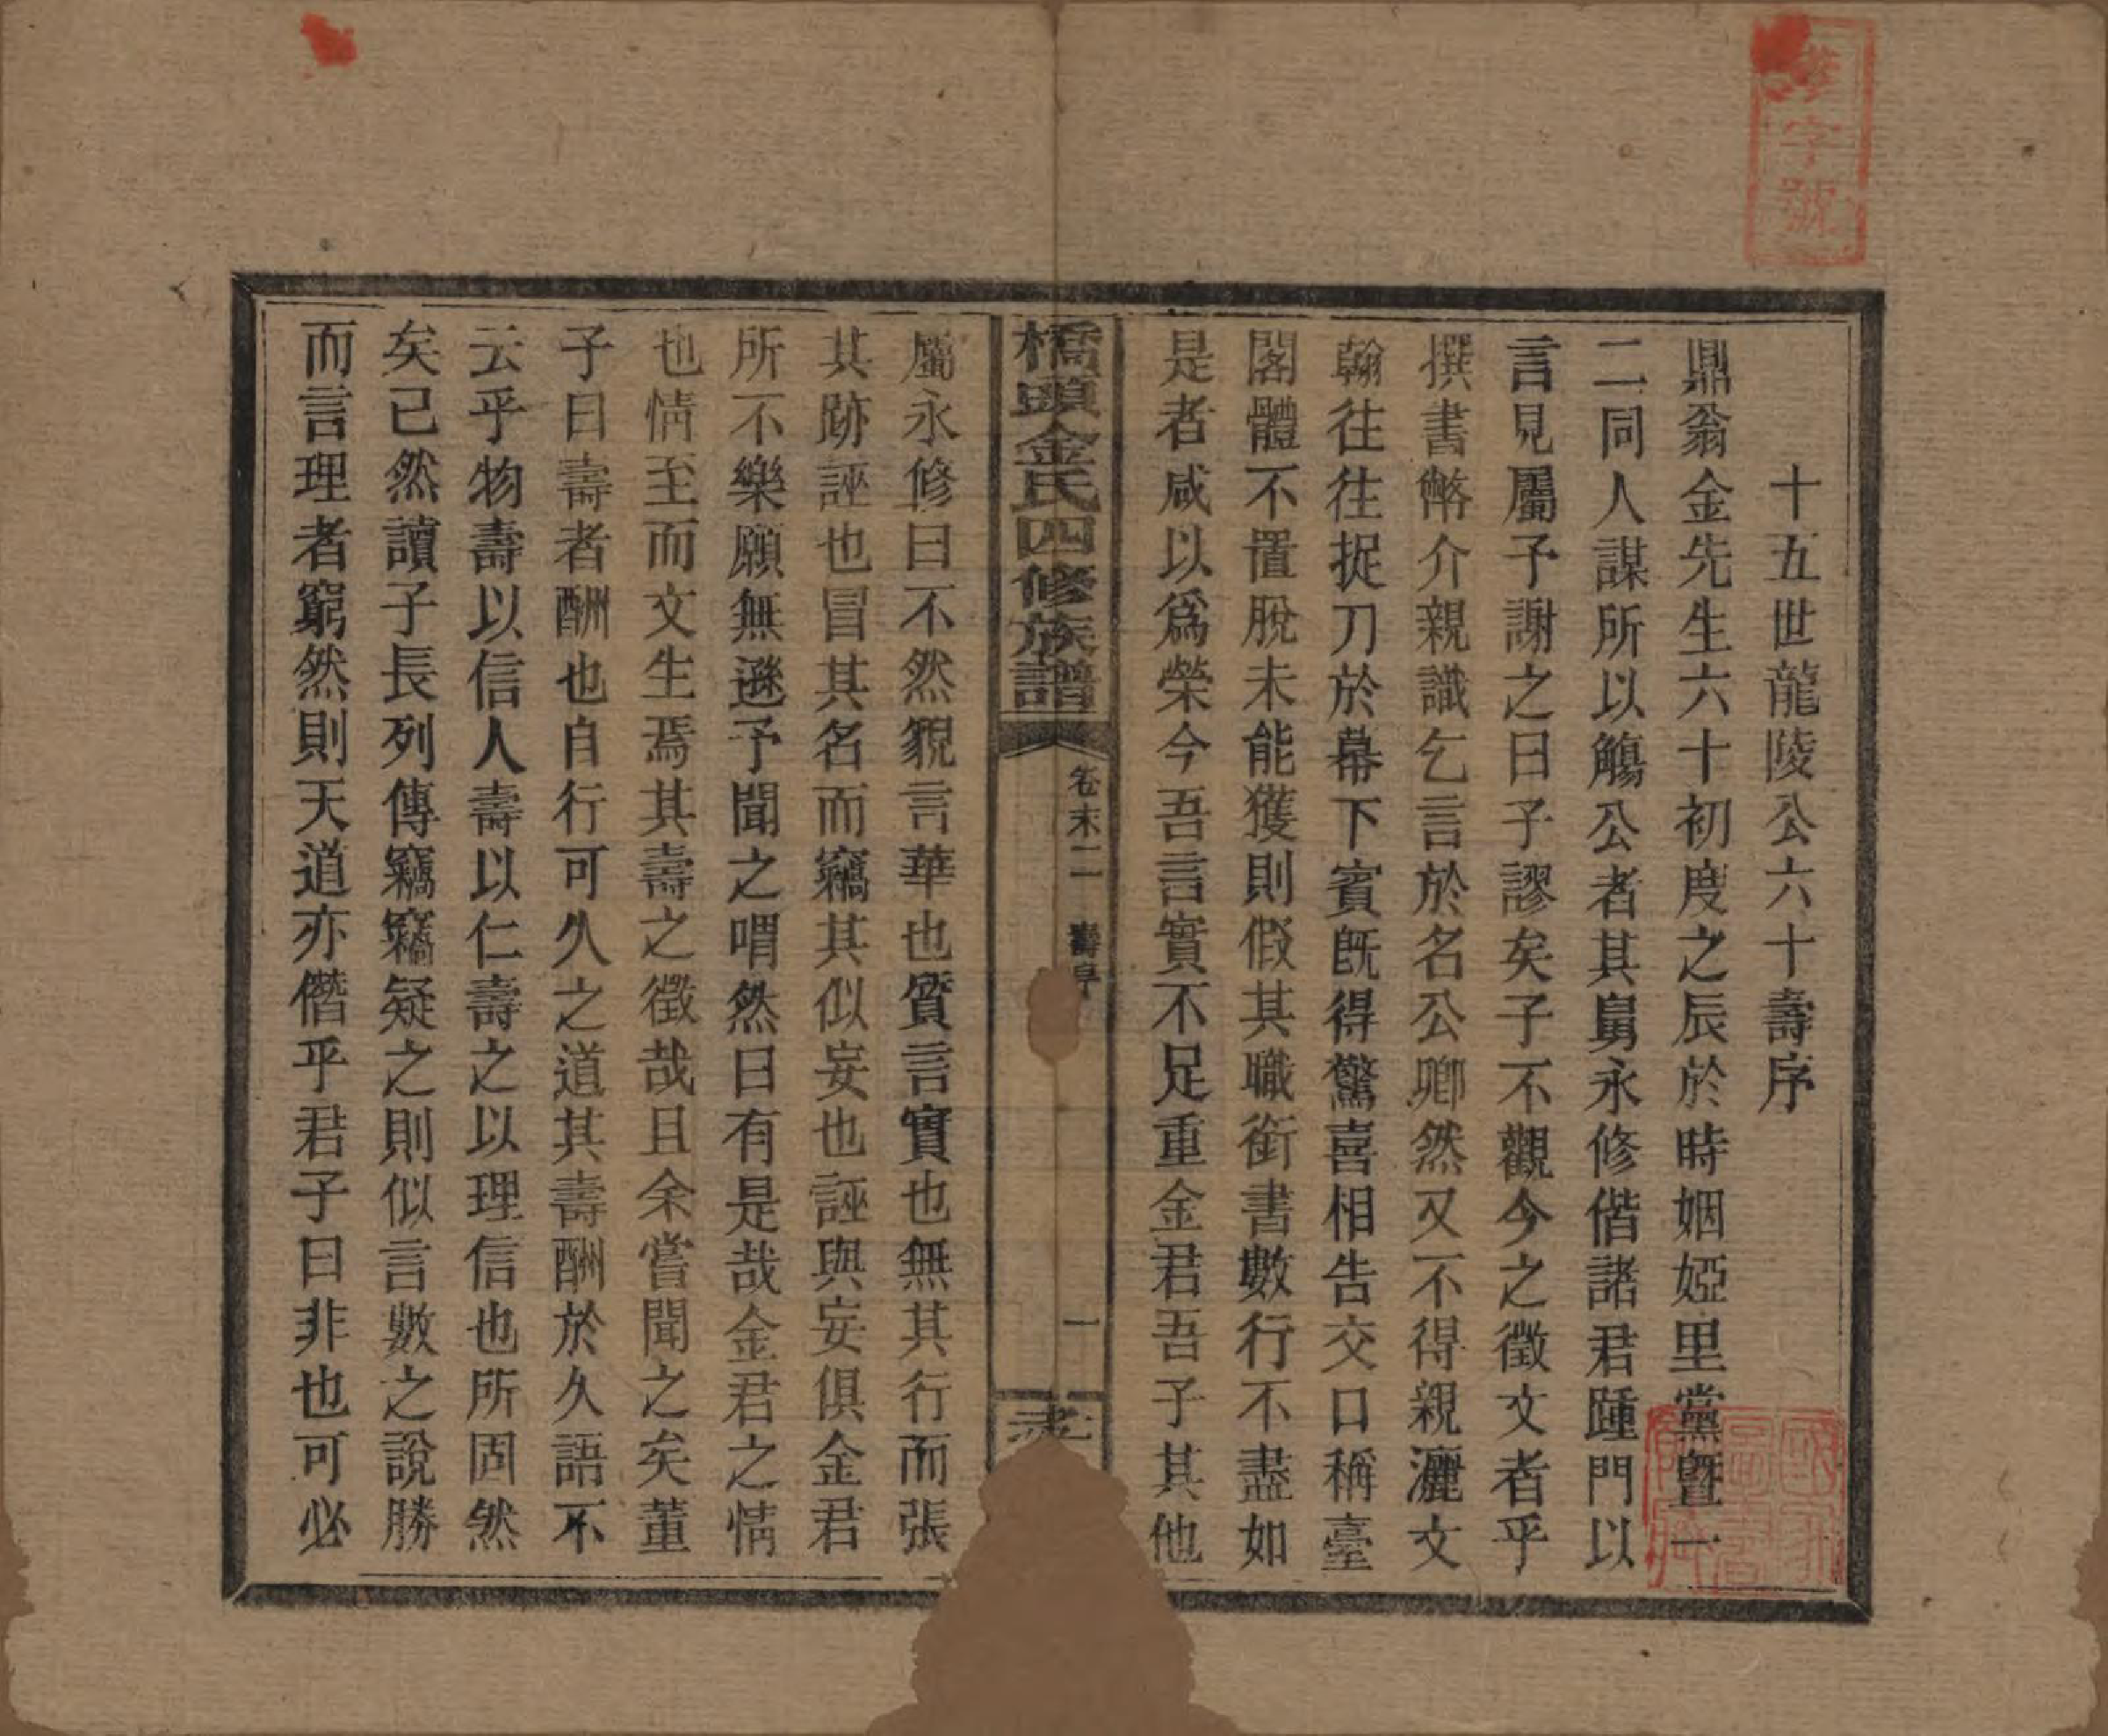 十五世龍陵公六十壽序
鼎翁金先生六十初度之辰於時姻婭里黨暨一
二同人謀所以觴公者其舅永修偕諸君踵門以
言見屬予謝之曰子謬矣子不觀今之徵文者乎
撰書幣介親識乞言於名公卿然又不得親灑文
翰往往捉刀於幕下賓旣得驚喜相告交口稱臺
閣體不置脫未能獲則假其職銜書數行不盡如
是者咸以爲榮今吾言實不足重金君吾子其他
橋頭金氏四修族譜
卷末二 壽序
一
屬永修曰不然貌言華也質言實也無其行而張
其跡誣也冒其名而竊其似妄也誣與妄俱金君
所不樂願無遜予聞之喟然曰有是哉金君之情
也情至而文生焉其壽之徵哉且余嘗聞之矣董
子曰壽者酬也自行可久之道其壽酬於久語不
云乎物壽以信人壽以仁壽之以理信也所固然
矣已然讀子長列傳竊竊疑之則似言數之說勝
而言理者窮然則天道亦僭乎君子曰非也可必
字號